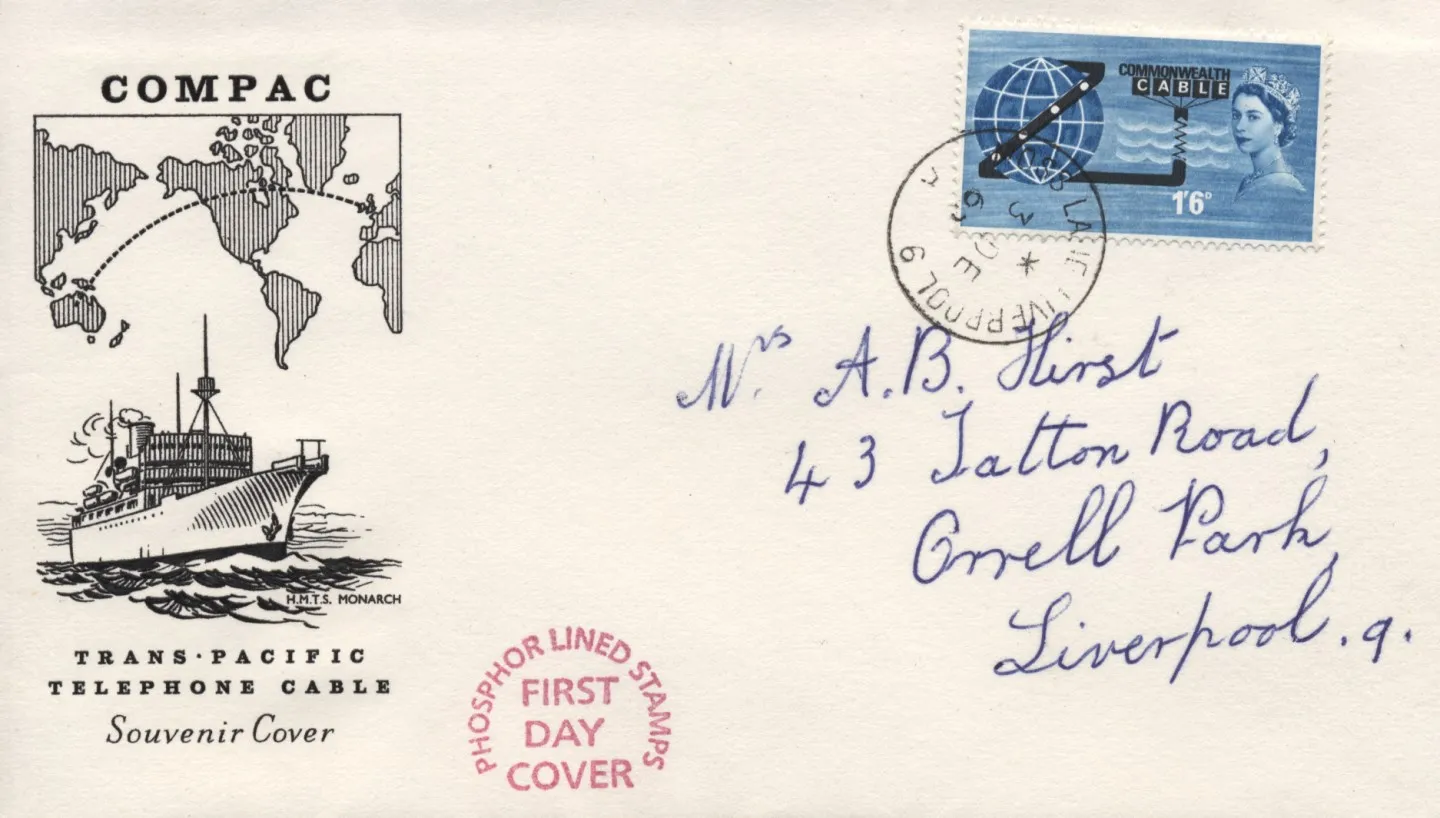 COMPAC
H.M.T.S. MONARCH
TRANS·PACIFIC
TELEPHONE CABLE
Souvenir Cover
PHOSPHOR LINED STAMPS
FIRST
DAY
COVER
COMMONWEALTH
CABLE
1'6D
LIVERPOOL 6
3 DE
63
Mrs. A.B. Hirst
43 Tatton Road,
Orrell Park,
Liverpool. 9.